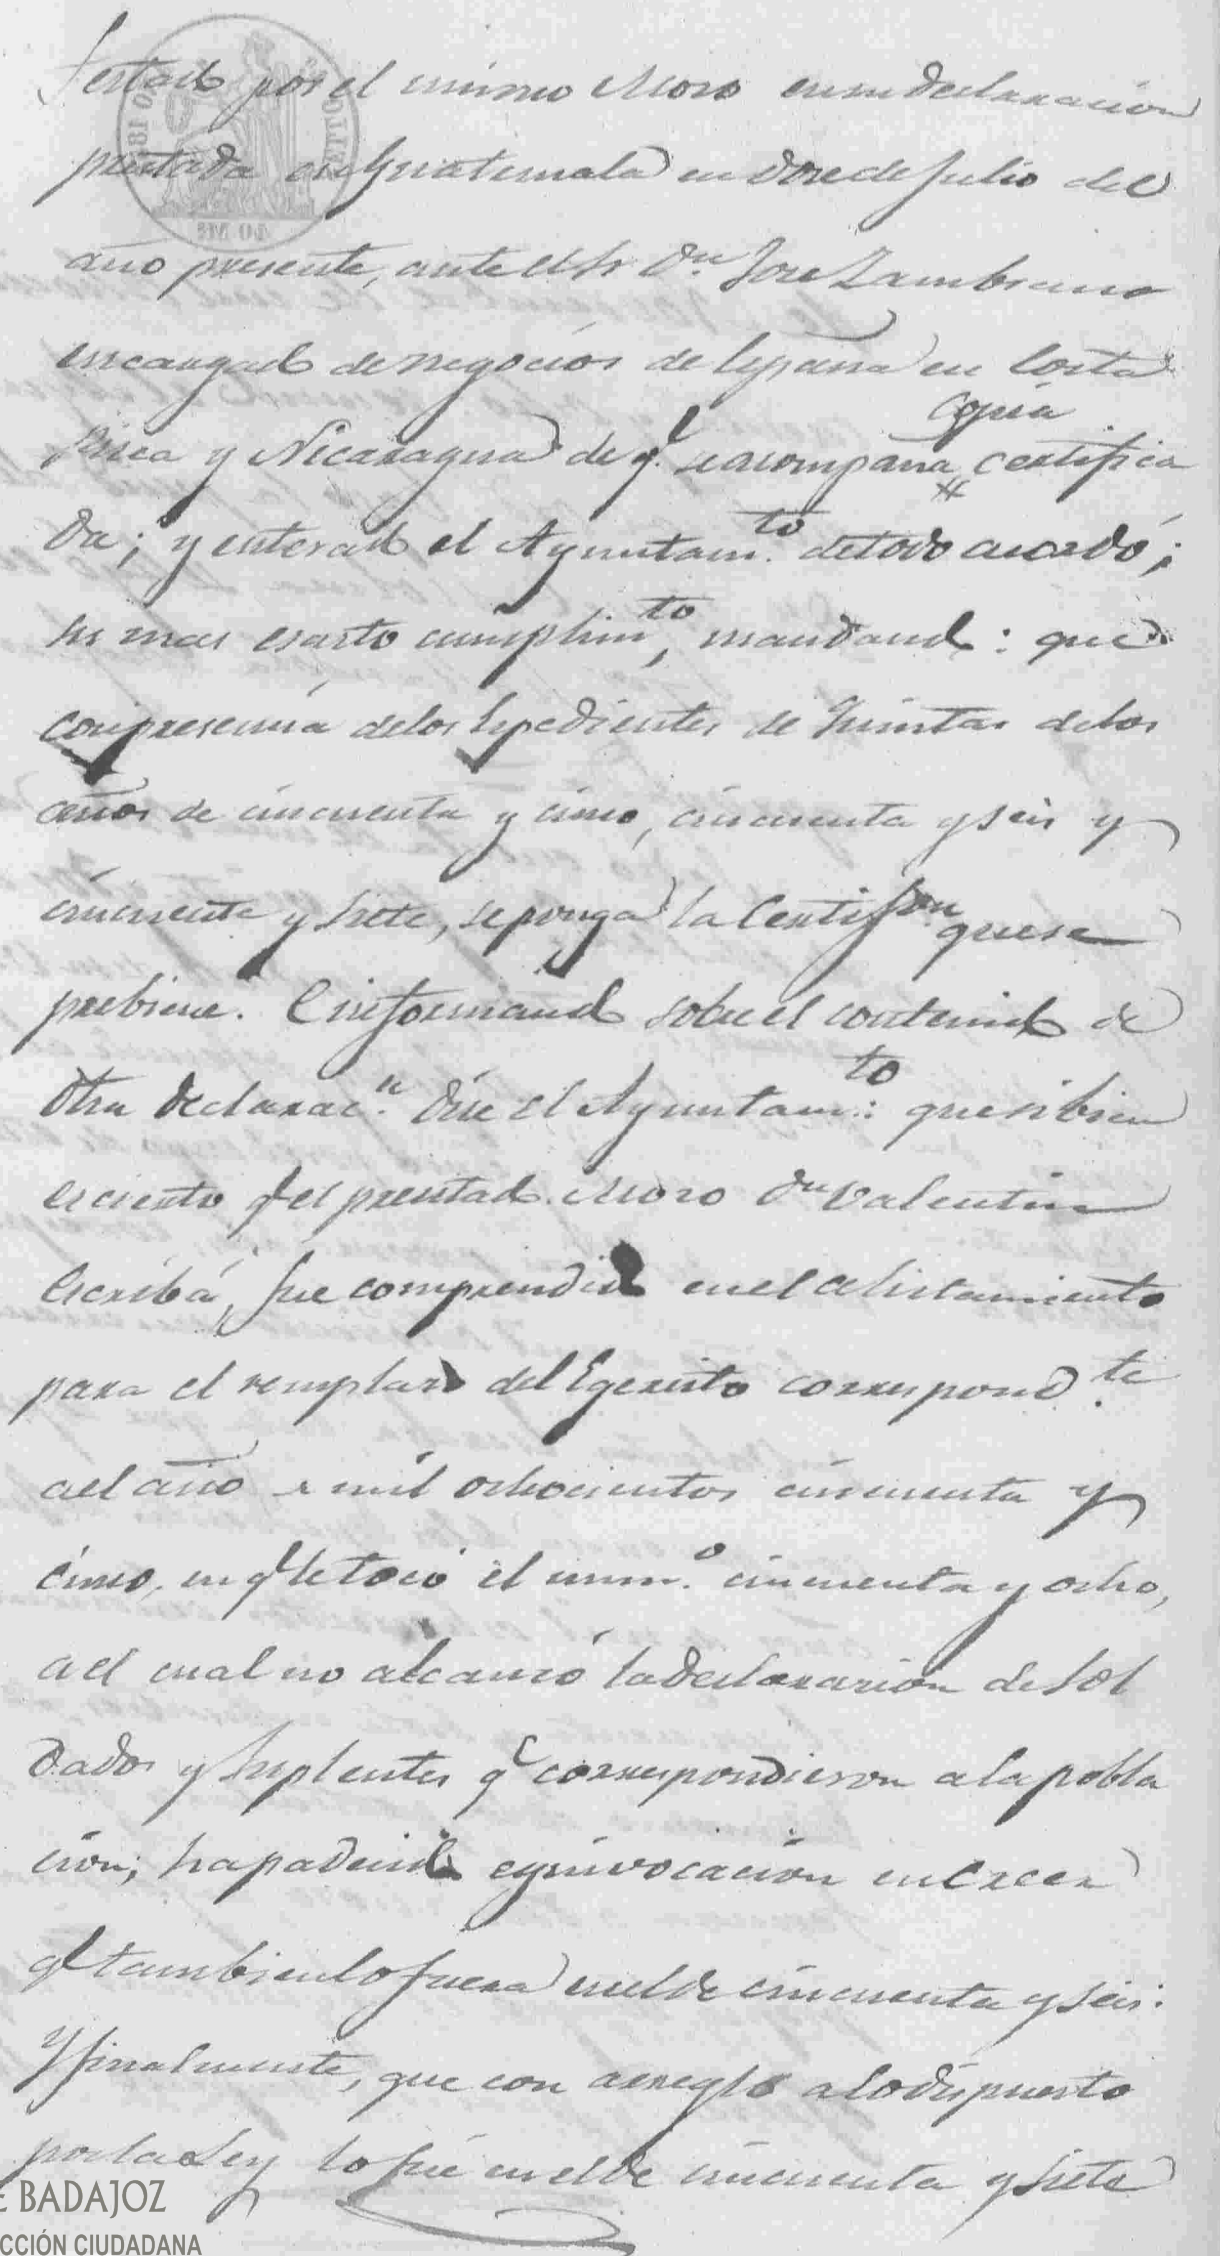 festado por el mismo Moro en su declaracion
prestada en Guatemala en doce de Julio del
año presente, ante el Sr Dn Jose Zambrano
encargado de negocios de España en Costa
copia
Rica y Nicaragua de q.e se acompaña certifica
da; y enterado el Ayuntam.to de todo acordó;
su mas esacto cumplim.to, mandando: que
con presencia de los Espedientes de Quintas de los
años de cincuenta y cinco, cincuenta y seis y
cincuenta y siete, se ponga la Certif.on que se
prebiene. E informando sobre el contenido de
otra declarac.n dice el Ayuntam.to: que si bien
es cierto q.e el prentado Moro Dn Valentin
Escribá, fue comprendido en el alistamiento
para el remplazo del Egercito correspond.te
al el año de mil ochocientos cincuenta y
cinco, en q.e le tocó el num.o cincuenta y ocho,
a el cual no alcanzó la declaracion de Sol
dados y Suplentes q.e correspondieron a la pobla
cion; ha padecido equivocacion en creer
q.e tambien lo fuera en el de cincuenta y seis:
Y finalmente, que con arreglo a lo dispuesto
por la Ley lo fué en el de cincuenta y siete
E BADAJOZ
CCIÓN CIUDADANA